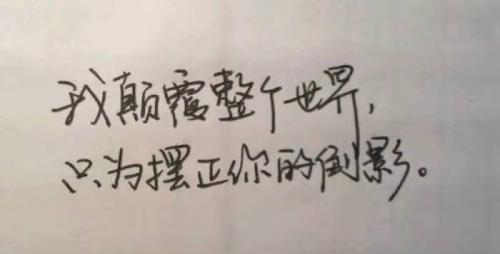 我颠覆整个世界,
只为摆正你的倒影。